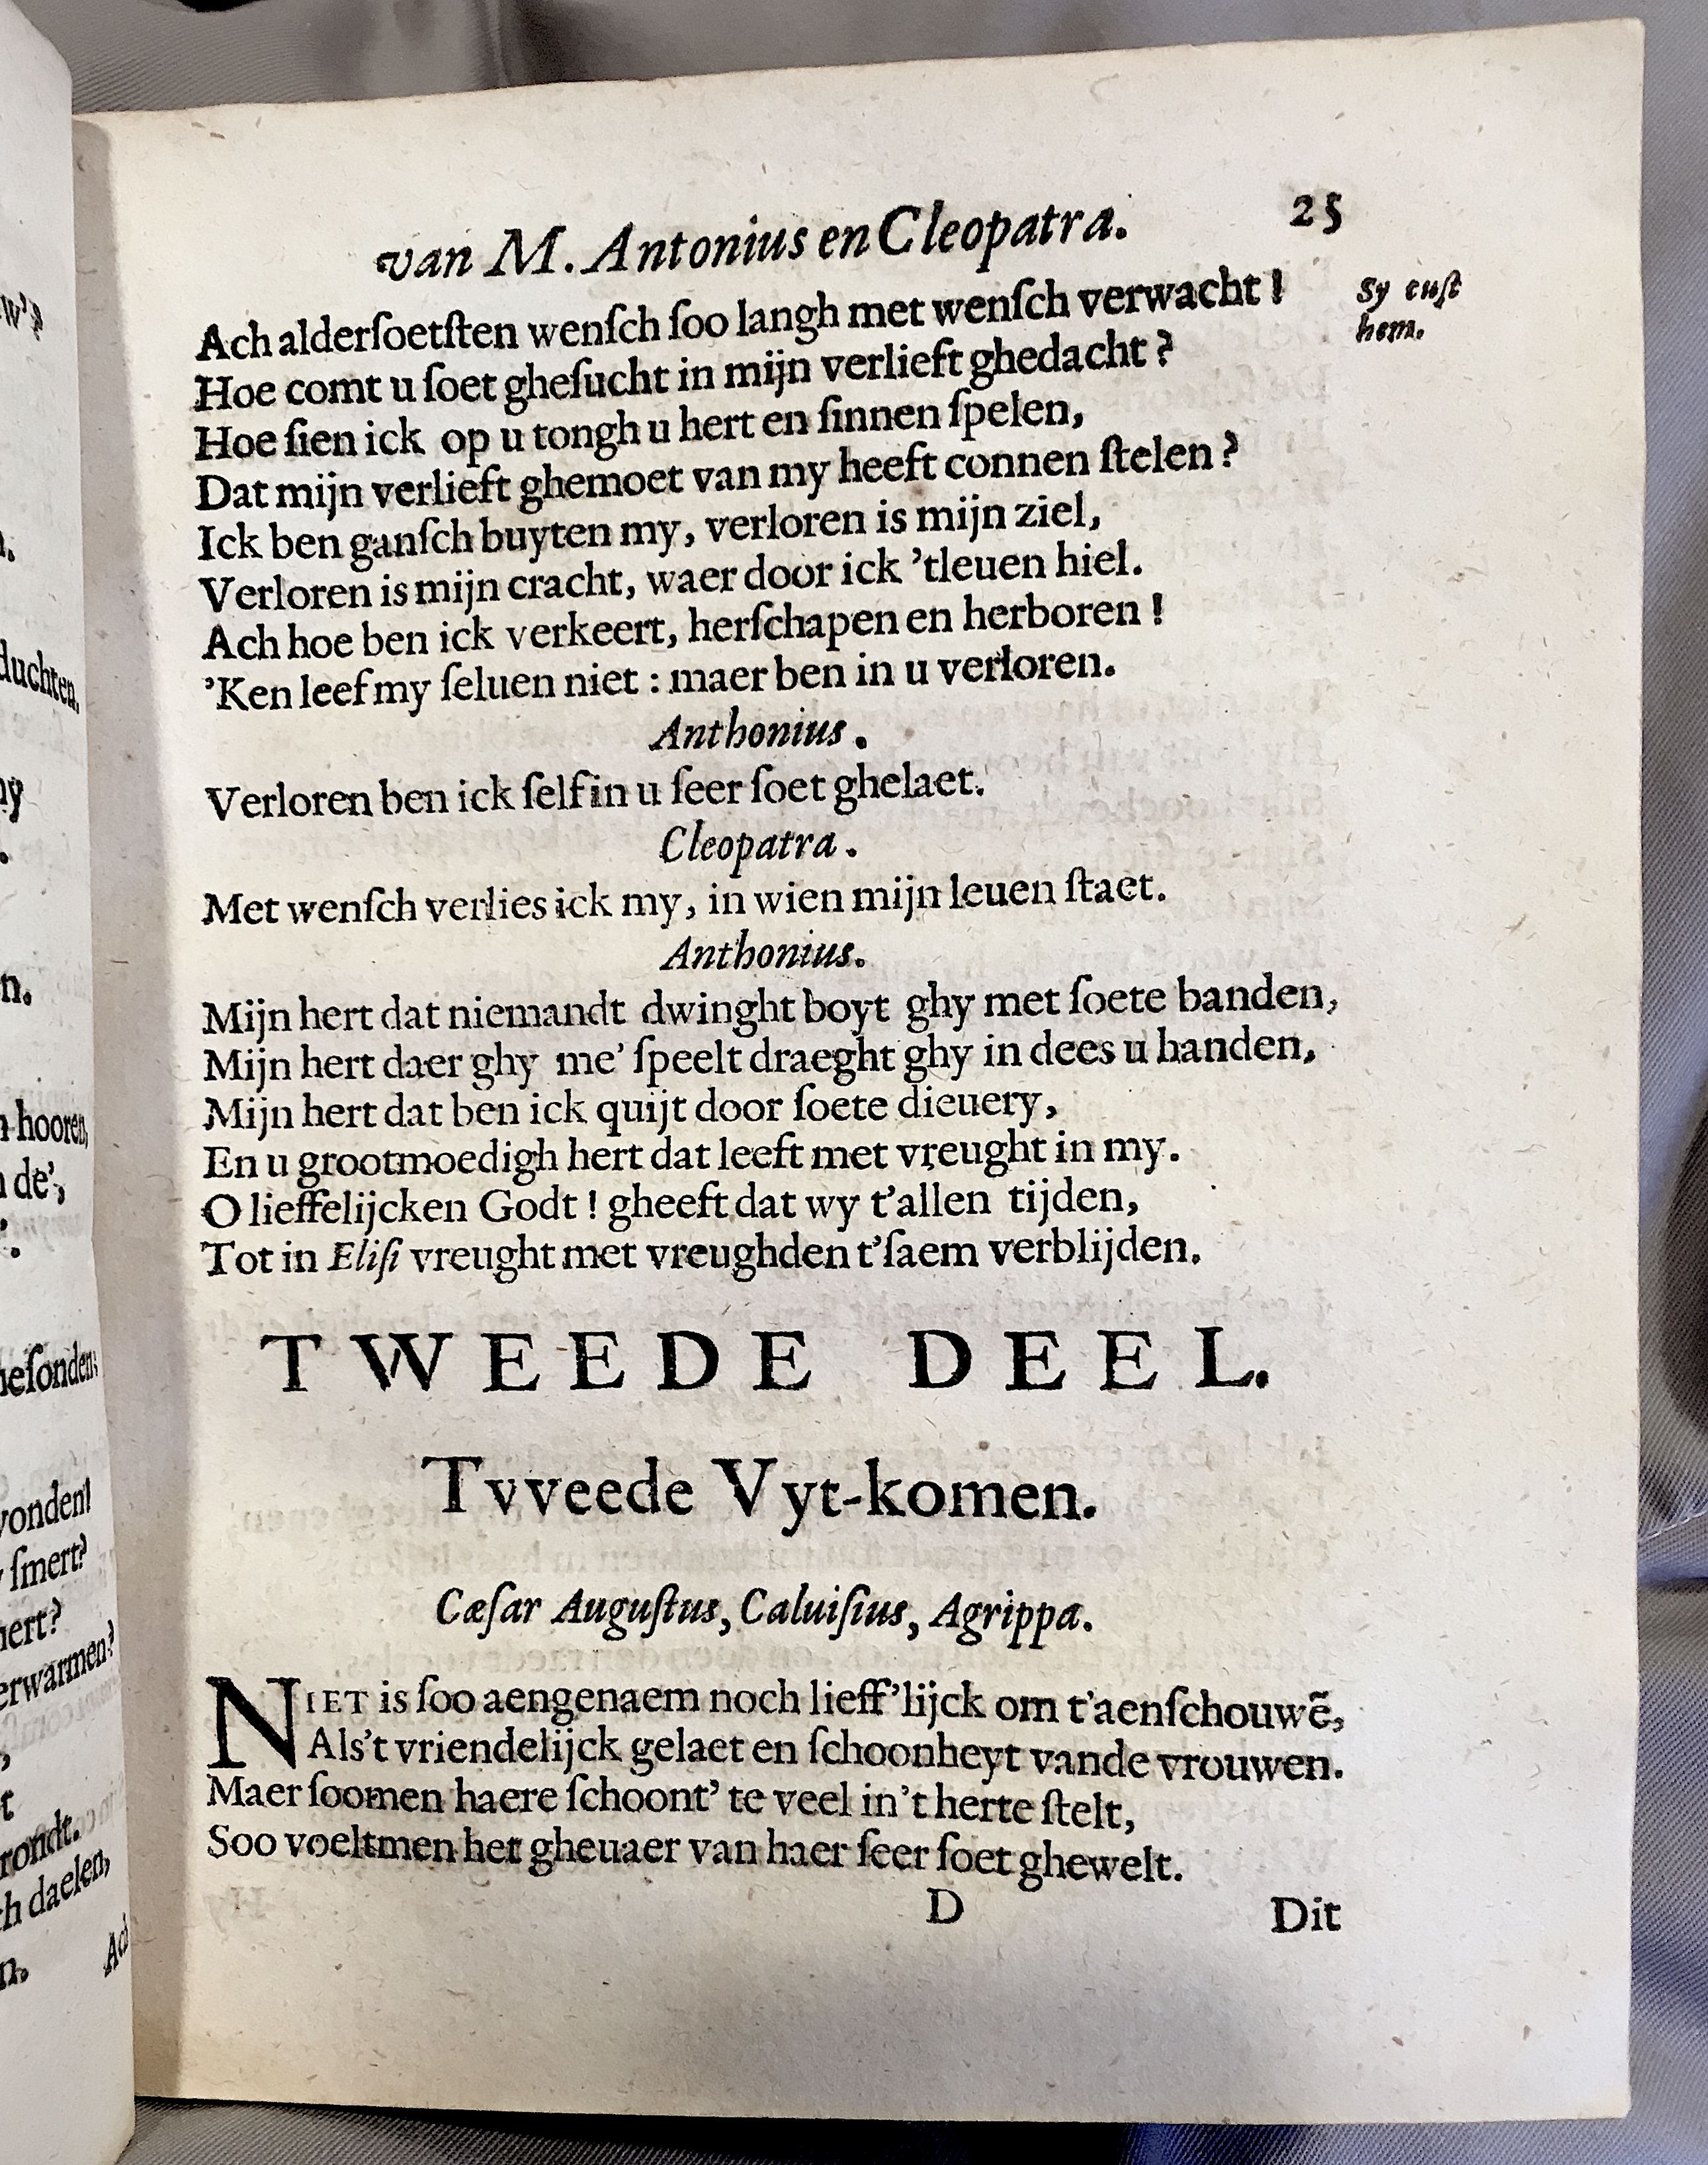 van M. Antonius en Cleopatra. 25
Ach alderſoetſten wenſch ſoo langh met wenſch verwacht!
Sy cuſt
hem.
Hoe comt u ſoet gheſucht in mijn verlieft ghedacht?
Hoe ſien ick op u tongh u hert en ſinnen ſpelen,
Dat mijn verlieft ghemoet van my heeft connen ſtelen?
Ick ben ganſch buyten my, verloren is mijn ziel,
Verloren is mijn cracht, waer door ick 'tleuen hiel.
Ach hoe ben ick verkeert, herſchapen en herboren!
'Ken leef my ſeluen niet: maer ben in u verloren.
Anthonius.
Verloren ben ick ſelf in u ſeer ſoet ghelaet.
Cleopatra.
Met wenſch verlies ick my, in wien mijn leuen ſtaet.
Anthonius.
Mijn hert dat niemandt dwinght boyt ghy met ſoete banden,
Mijn hert daer ghy me' ſpeelt draeght ghy in dees u handen,
Mijn hert dat ben ick quijt door ſoete dieuery,
En u grootmoedigh hert dat leeft met vreught in my.
O lieffelijcken Godt! gheeft dat wy t'allen tijden,
Tot in Eliſi vreught met vreughden t'ſaem verblijden.
TWEEDE DEEL.
Tvveede Vyt-komen.
Cæſar Auguſtus, Caluiſius, Agrippa.
NIET is ſoo aengenaem noch lieff'lijck om t'aenſchouwē,
Als't vriendelijck gelaet en ſchoonheyt vande vrouwen.
Maer ſoomen haere ſchoont' te veel in't herte ſtelt,
Soo voeltmen het gheuaer van haer ſeer ſoet ghewelt.
D Dit